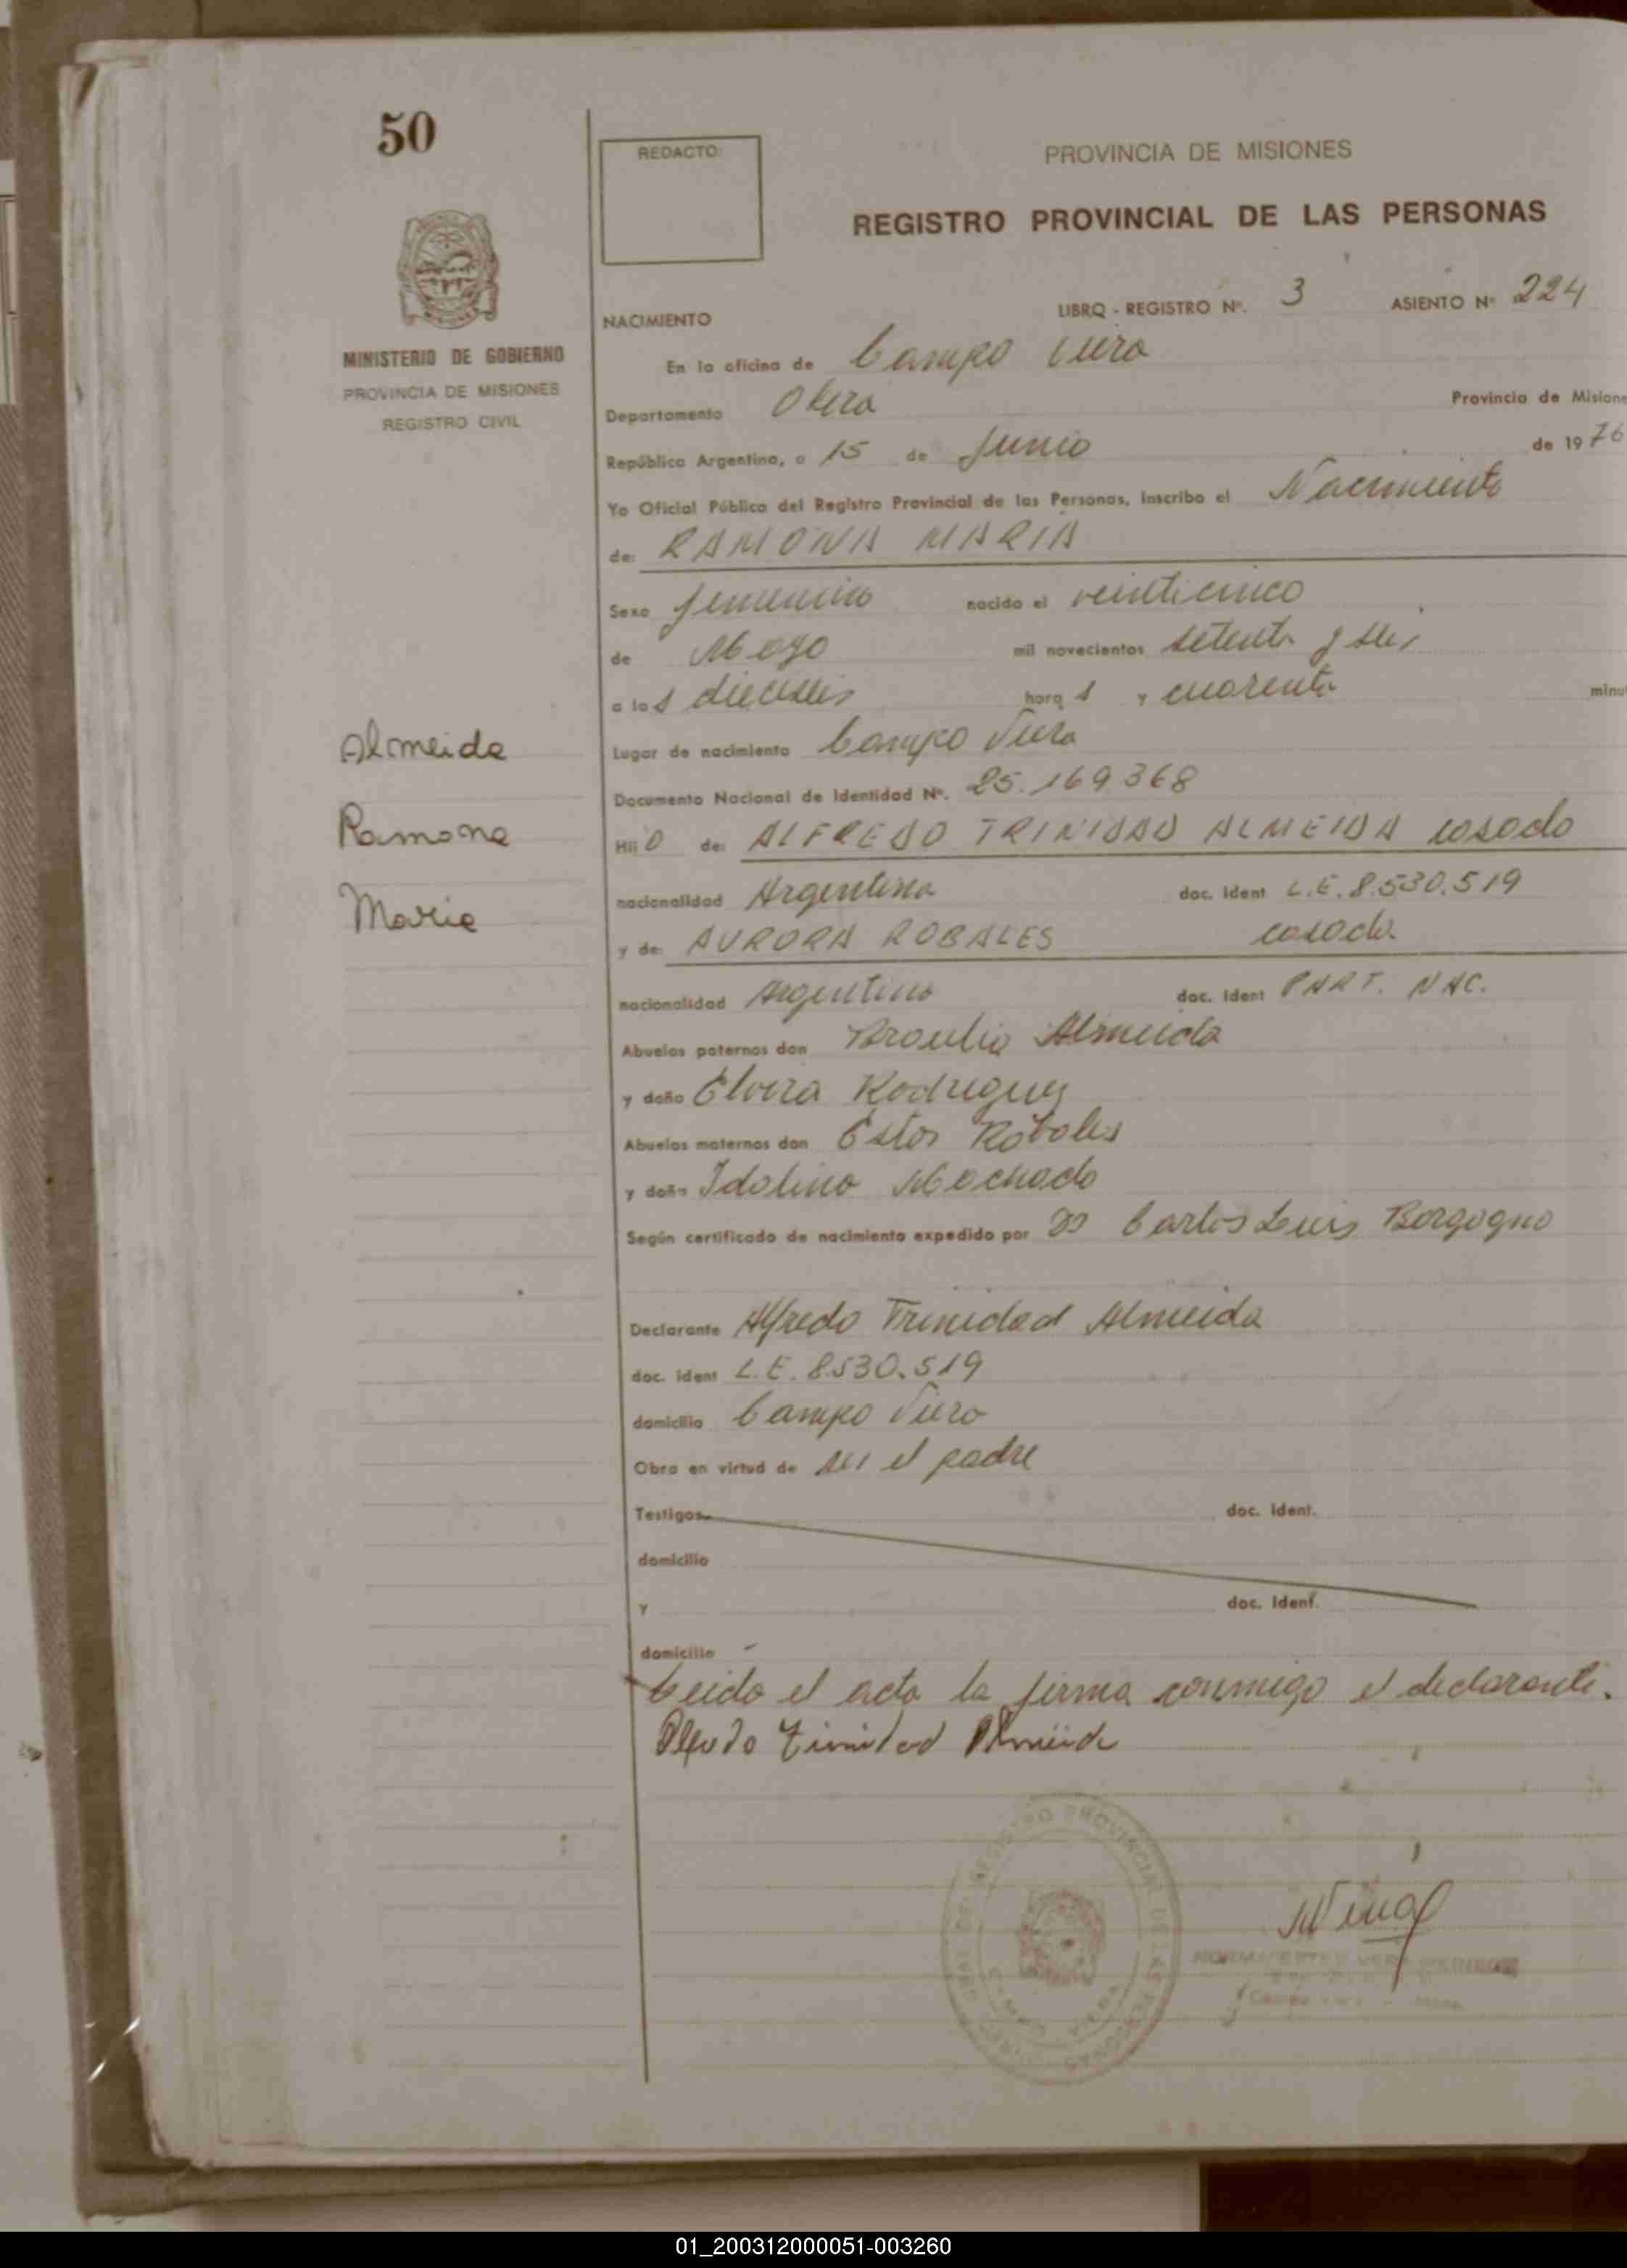 50
REDACTO:
PROVINCIA DE MISIONES
REGISTRO PROVINCIAL DE LAS PERSONAS
MINISTERIO DE GOBIERNO
PROVINCIA DE MISIONES
REGISTRO CIVIL
LIBRO - REGISTRO Nº. 3 ASIENTO Nº 224
NACIMIENTO
En la oficina de Campo Viera
Departamento Obera Provincia de Misione
República Argentina, a 15 de Junio de 1976
Yo Oficial Público del Registro Provincial de las Personas, inscribo el Nacimiento
de: RAMONA MARIA
Sexo femenino nacido el veinticinco
de Mayo mil novecientos setenta y seis
a las dieciseis horas y cuarenta minu
Lugar de nacimiento Campo Viera
Documento Nacional de Identidad Nº. 25.169.368
Almeida
Ramona
Maria
Hija de: ALFREDO TRINIDAD ALMEIDA casado
nacionalidad Argentina doc. ident L.E. 8.530.519
y de: AURORA ROBALES casada
nacionalidad Argentina doc. ident PART. NAC.
Abuelos paternos don Braulio Almeida
y doña Elvira Rodriguez
Abuelos maternos don Robales
y doña Idalina Machado
Según certificado de nacimiento expedido por Dr Carlos Luis Borgogno
Declarante Alfredo Trinidad Almeida
doc. ident L.E. 8.530.519
domicilio Campo Viera
Obra en virtud de ser el padre
Testigos doc. ident.
domicilio
y doc. ident.
domicilio
Leido el acta la firma conmigo el declarante.
Alfredo Trinidad Almeida
01_200312000051-003260